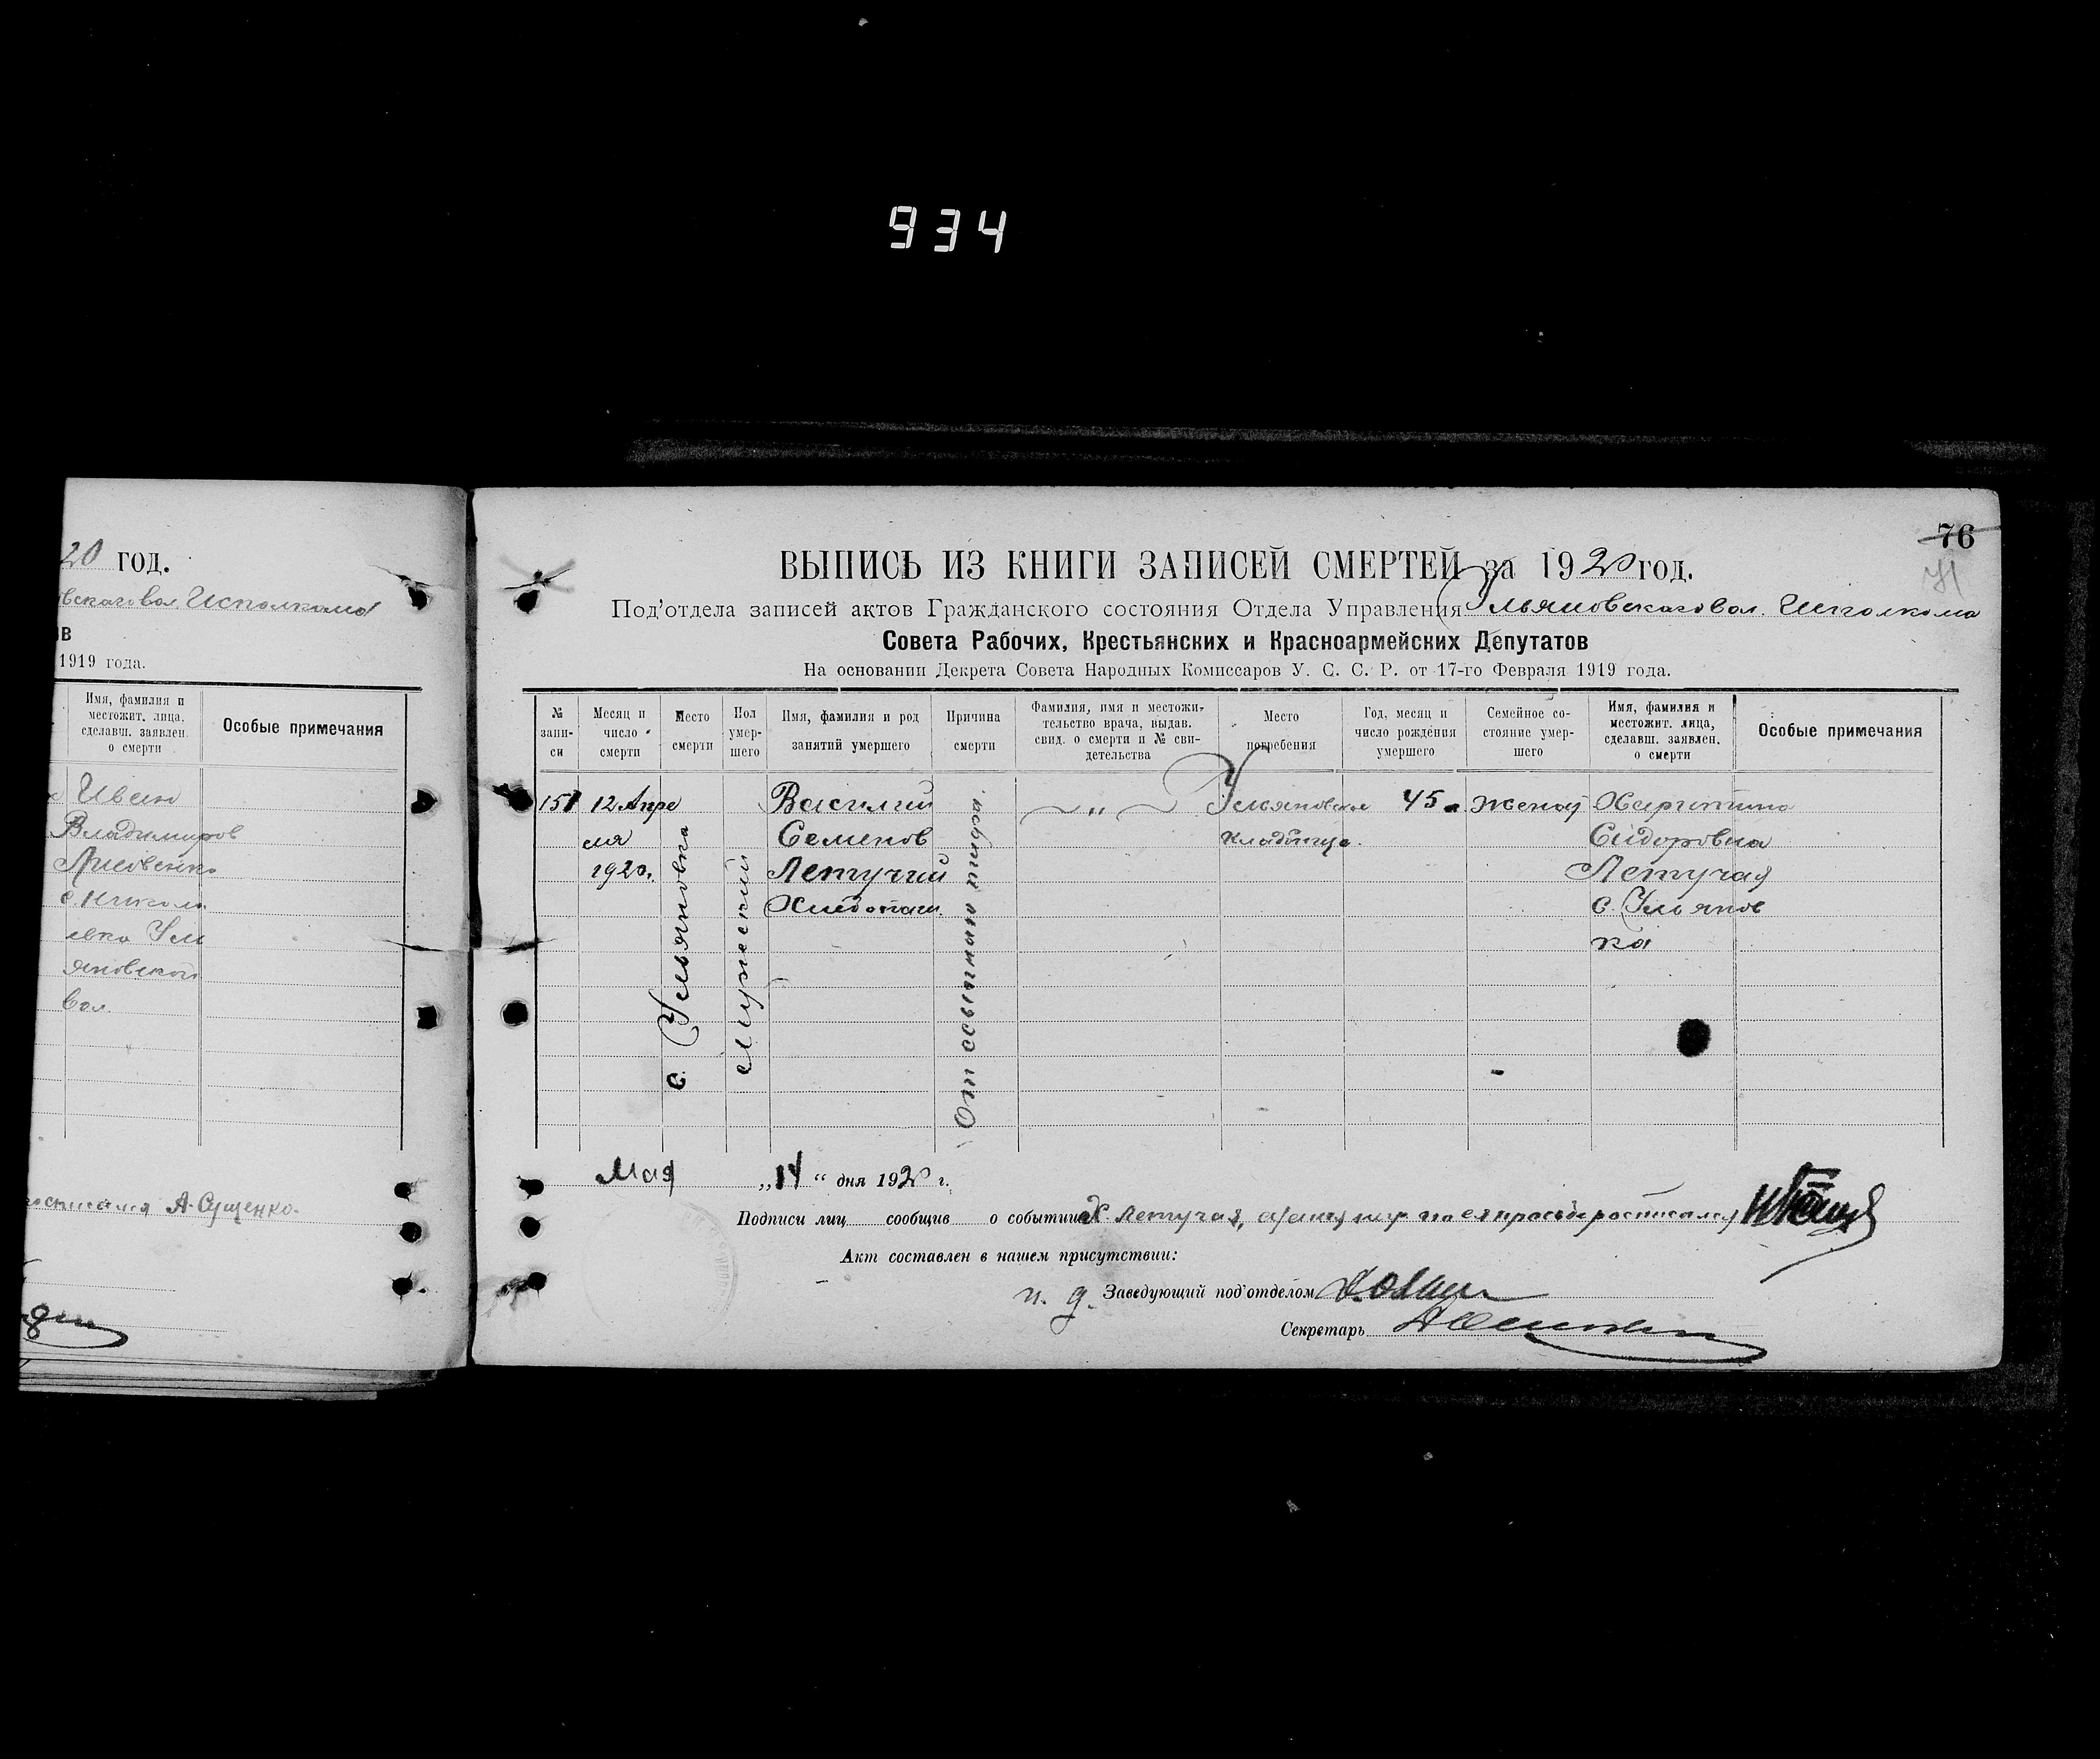 934
20 год.
вскаго вол. Исполкома
ов
1919 года.
Имя, фамилия и местожит. лица, сделавш. заявлен. о смерти
Особые примечания
Иван
Владимиров
Лисовенко
с. Никола
евка Уль
яновской
вол.
А. Сущенко.
76
71
ВЫПИСЬ ИЗ КНИГИ ЗАПИСЕЙ СМЕРТЕЙ за 1920 год.
Под'отдела записей актов Гражданского состояния Отдела Управления Ульяновскаго вол. Исполкома
Совета Рабочих, Крестьянских и Красноармейских Депутатов
На основании Декрета Совета Народных Комиссаров У. С. С. Р. от 17-го Февраля 1919 года.
№ запи-си
Месяц и число смерти
Место смерти
Пол умер-шего
Имя, фамилия и род занятий умершего
Причина смерти
Фамилия, имя и местожи-тельство врача, выдав. свид. о смерти и № сви-детельства
Место погребения
Год, месяц и число рождения умершего
Семейное со-стояние умер-шего
Имя, фамилия и местожит. лица, сделавш. заявлен. о смерти
Особые примечания
151
12 Апре
ля
1920.
с. Ульяновка
Мужеский
Василий
Семенов
Летучий
Хлебопаш.
От сыпного тифа.
„
Ульяновское
кладбище.
45
женат
Харитина
Сидоровна
Летучая
с. Ульянов
ка
Мая „14“ дня 1920 г.
Подписи лиц сообщив о событии Х. Летучая, а за нея негр. по ея просьбе росписался
Акт составлен в нашем присутствии:
и. д. Заведующий под'отделом
Секретарь